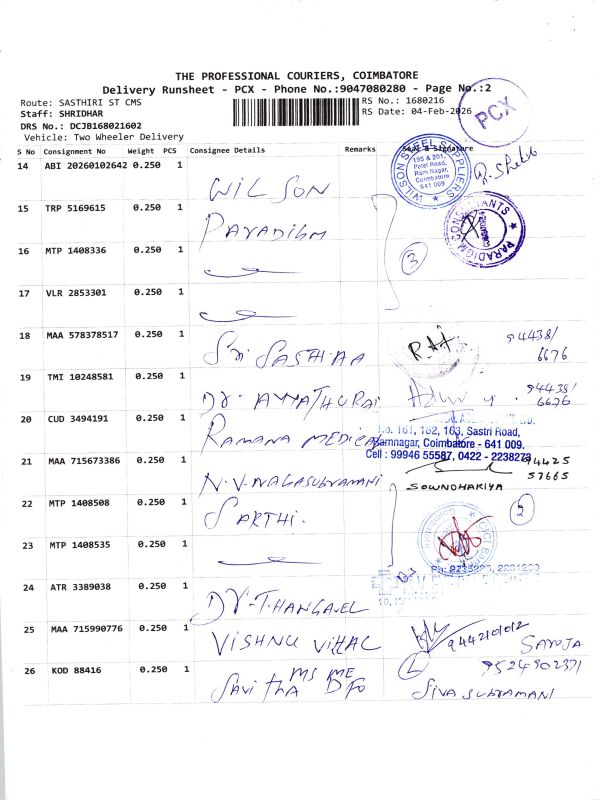 THE PROFESSIONAL COURIERS, COIMBATORE
Delivery Runsheet - PCX - Phone No.:9047080280 - Page No.:2
Route: SASTHIRI ST CMS
RS No.: 1680216
Staff: SHRIDHAR
RS Date: 04-Feb-2026
DRS No.: DCJB168021602
Vehicle: Two Wheeler Delivery
PCX
S No Consignment No Weight PCS Consignee Details Remarks Seal & Signature
14 ABI 20260102642 0.250 1 WILSON
WILSON STEEL SUPPLIERS
195 & 201,
Patel Road,
Ram Nagar,
Coimbatore
641 009
15 TRP 5169615 0.250 1 PARADIGM
PARADIGM CONSULTANTS
16 MTP 1408336 0.250 1
3
17 VLR 2853301 0.250 1
18 MAA 578378517 0.250 1 Sri SASTHAA
94438/
6676
19 TMI 10248581 0.250 1 Dr. AYYATHURAI
94438/
6676
20 CUD 3494191 0.250 1 RAMANA MEDICAL
No. 161, 162, 163, Sastri Road,
Ramnagar, Coimbatore - 641 009.
Cell : 99946 55587, 0422 - 2238273
21 MAA 715673386 0.250 1 N.V. NAGASUBRAMANI
94425
57665
SOWNDHARIYA
22 MTP 1408508 0.250 1 SARTHI.
2
23 MTP 1408535 0.250 1
24 ATR 3389038 0.250 1 Dr. THANGAVEL
25 MAA 715990776 0.250 1 VISHNU VITTAL
SAROJA
26 KOD 88416 0.250 1 Savitha MS ME
9524902371
SIVA SUBRAMANI